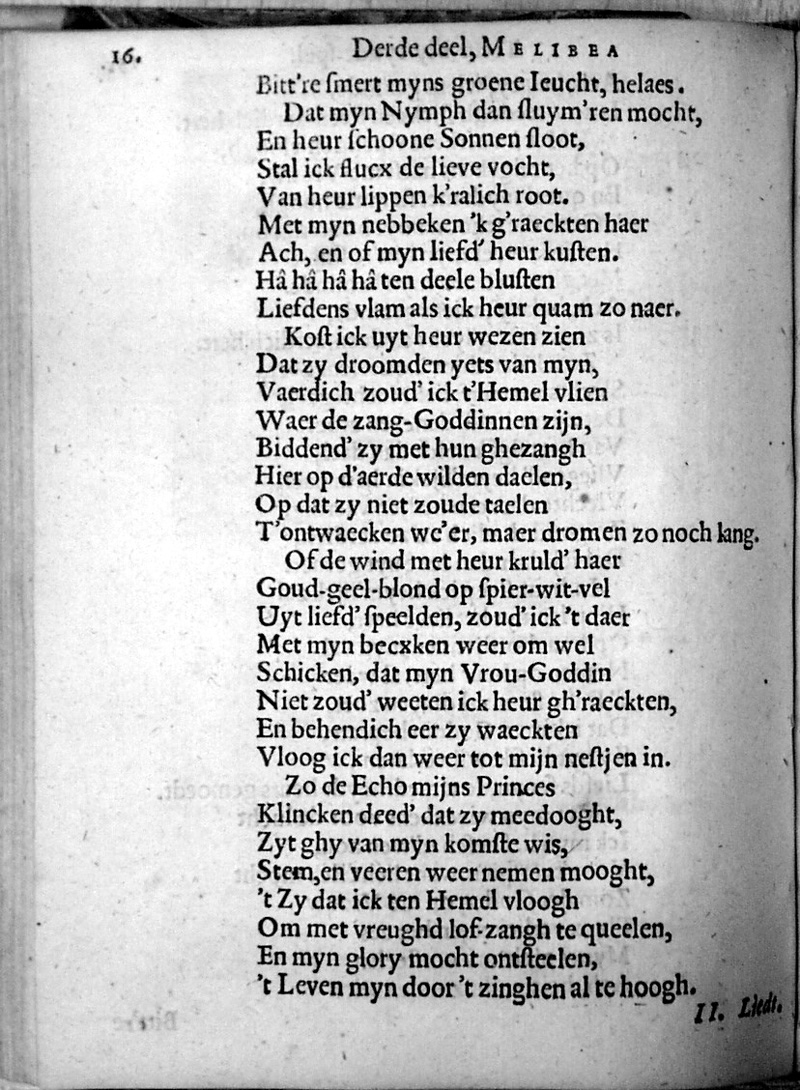 16.
Derde deel, MELIBEA
Bitt're ſmert myns groene Ieucht, helaes.
Dat myn Nymph dan ſluym'ren mocht,
En heur ſchoone Sonnen ſloot,
Stal ick flucx de lieve vocht,
Van heur lippen k'ralich root.
Met myn nebbeken 'k g'raeckten haer
Ach, en of myn liefd' heur kuſten.
Hâ hâ hâ hâ ten deele bluſten
Liefdens vlam als ick heur quam zo naer.
Koſt ick uyt heur wezen zien
Dat zy droomden yets van myn,
Vaerdich zoud' ick t'Hemel vlien
Waer de zang-Goddinnen zijn,
Biddend' zy met hun ghezangh
Hier op d'aerde wilden daelen,
Op dat zy niet zoude taelen
T'ontwaecken we'er, maer dromen zo noch lang.
Of de wind met heur kruld' haer
Goud-geel-blond op ſpier-wit-vel
Uyt liefd' ſpeelden, zoud' ick 't daer
Met myn becxken weer om wel
Schicken, dat myn Vrou-Goddin
Niet zoud' weeten ick heur gh'raeckten,
En behendich eer zy waeckten
Vloog ick dan weer tot mijn neſtjen in.
Zo de Echo mijns Princes
Klincken deed' dat zy meedooght,
Zyt ghy van myn komſte wis,
Stem, en veeren weer nemen mooght,
't Zy dat ick ten Hemel vloogh
Om met vreughd lof-zangh te queelen,
En myn glory mocht ontſteelen,
't Leven myn door 't zinghen al te hoogh.
II. Liedt.